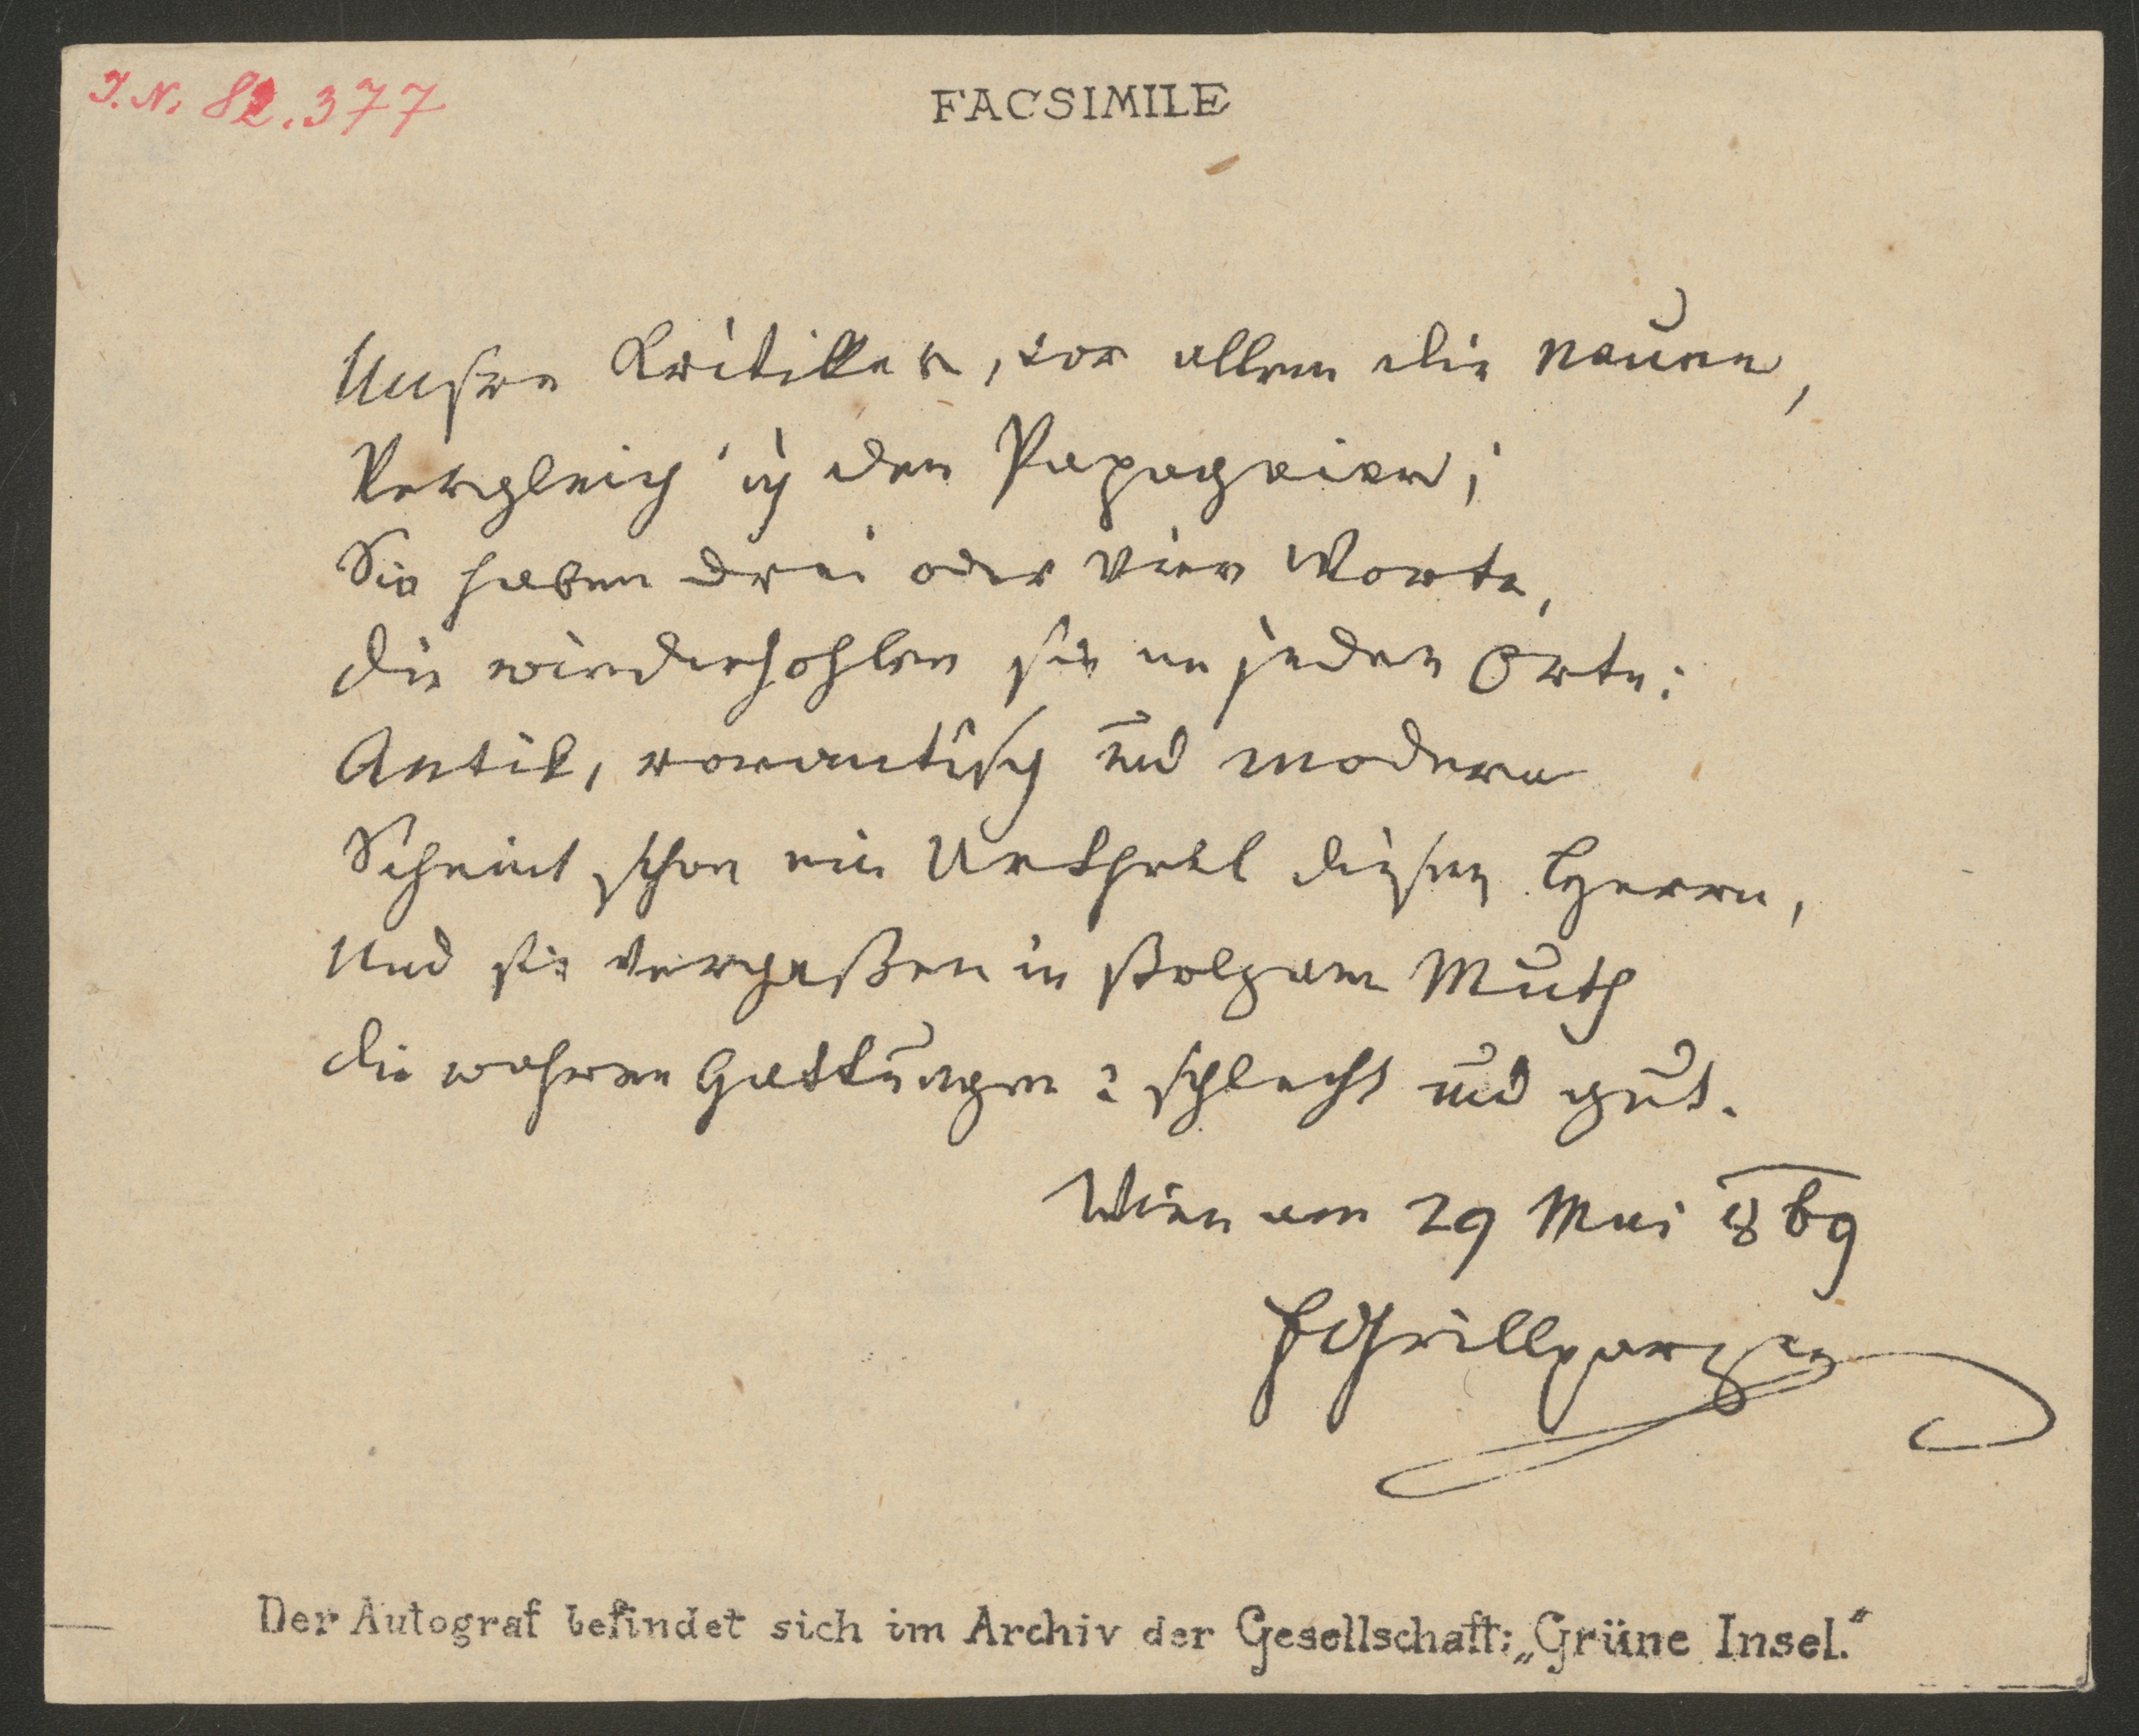 I. N. 82.377
FACSIMILE
Unsre Kritiker, vor allem die neuen,
Vergleich' ich den Papageien;
Sie haben drei oder vier Worte,
Die wiederhohlen sie an jedem Orte:
Antik, romantisch und modern
Scheint schon ein Urtheil diesen Herrn,
Und sie vergaßen in stolzem Muth
Die wahren Gattungen: schlecht und gut.
Wien am 29 Mai 869
FGrillparzer
Der Autograf befindet sich im Archiv der Gesellschaft: „Grüne Insel."